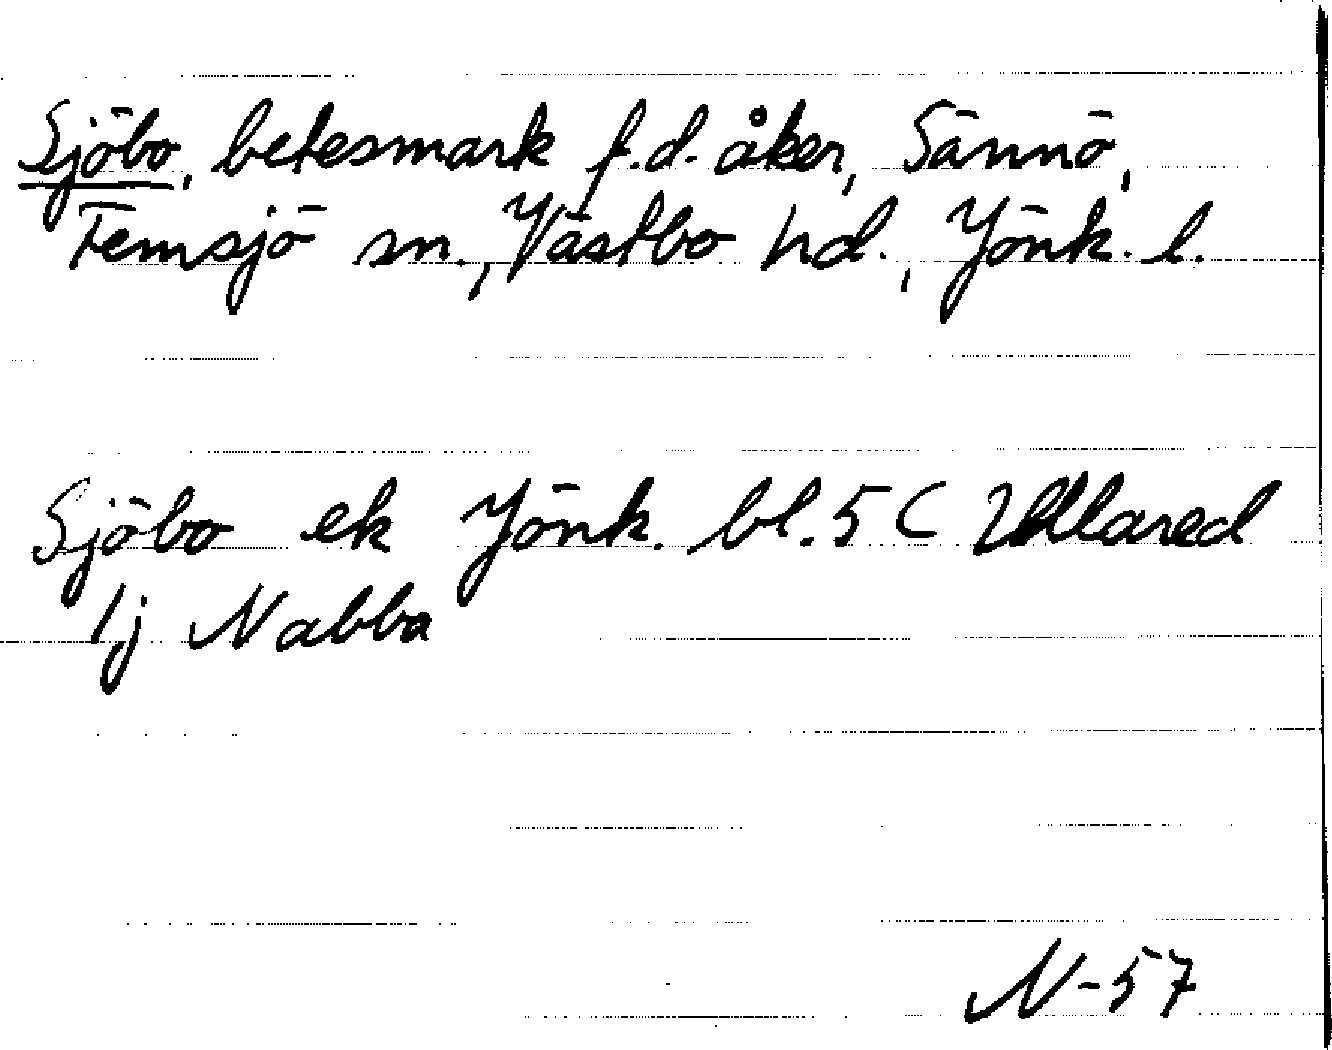 Sjöbo, betesmark f.d. åker, Sännö,
Femsjö sn., Västbo hd., Jönk. l.
Sjöbo ek Jönk. bl. 5 C Ullared
1j Nabba
N-57